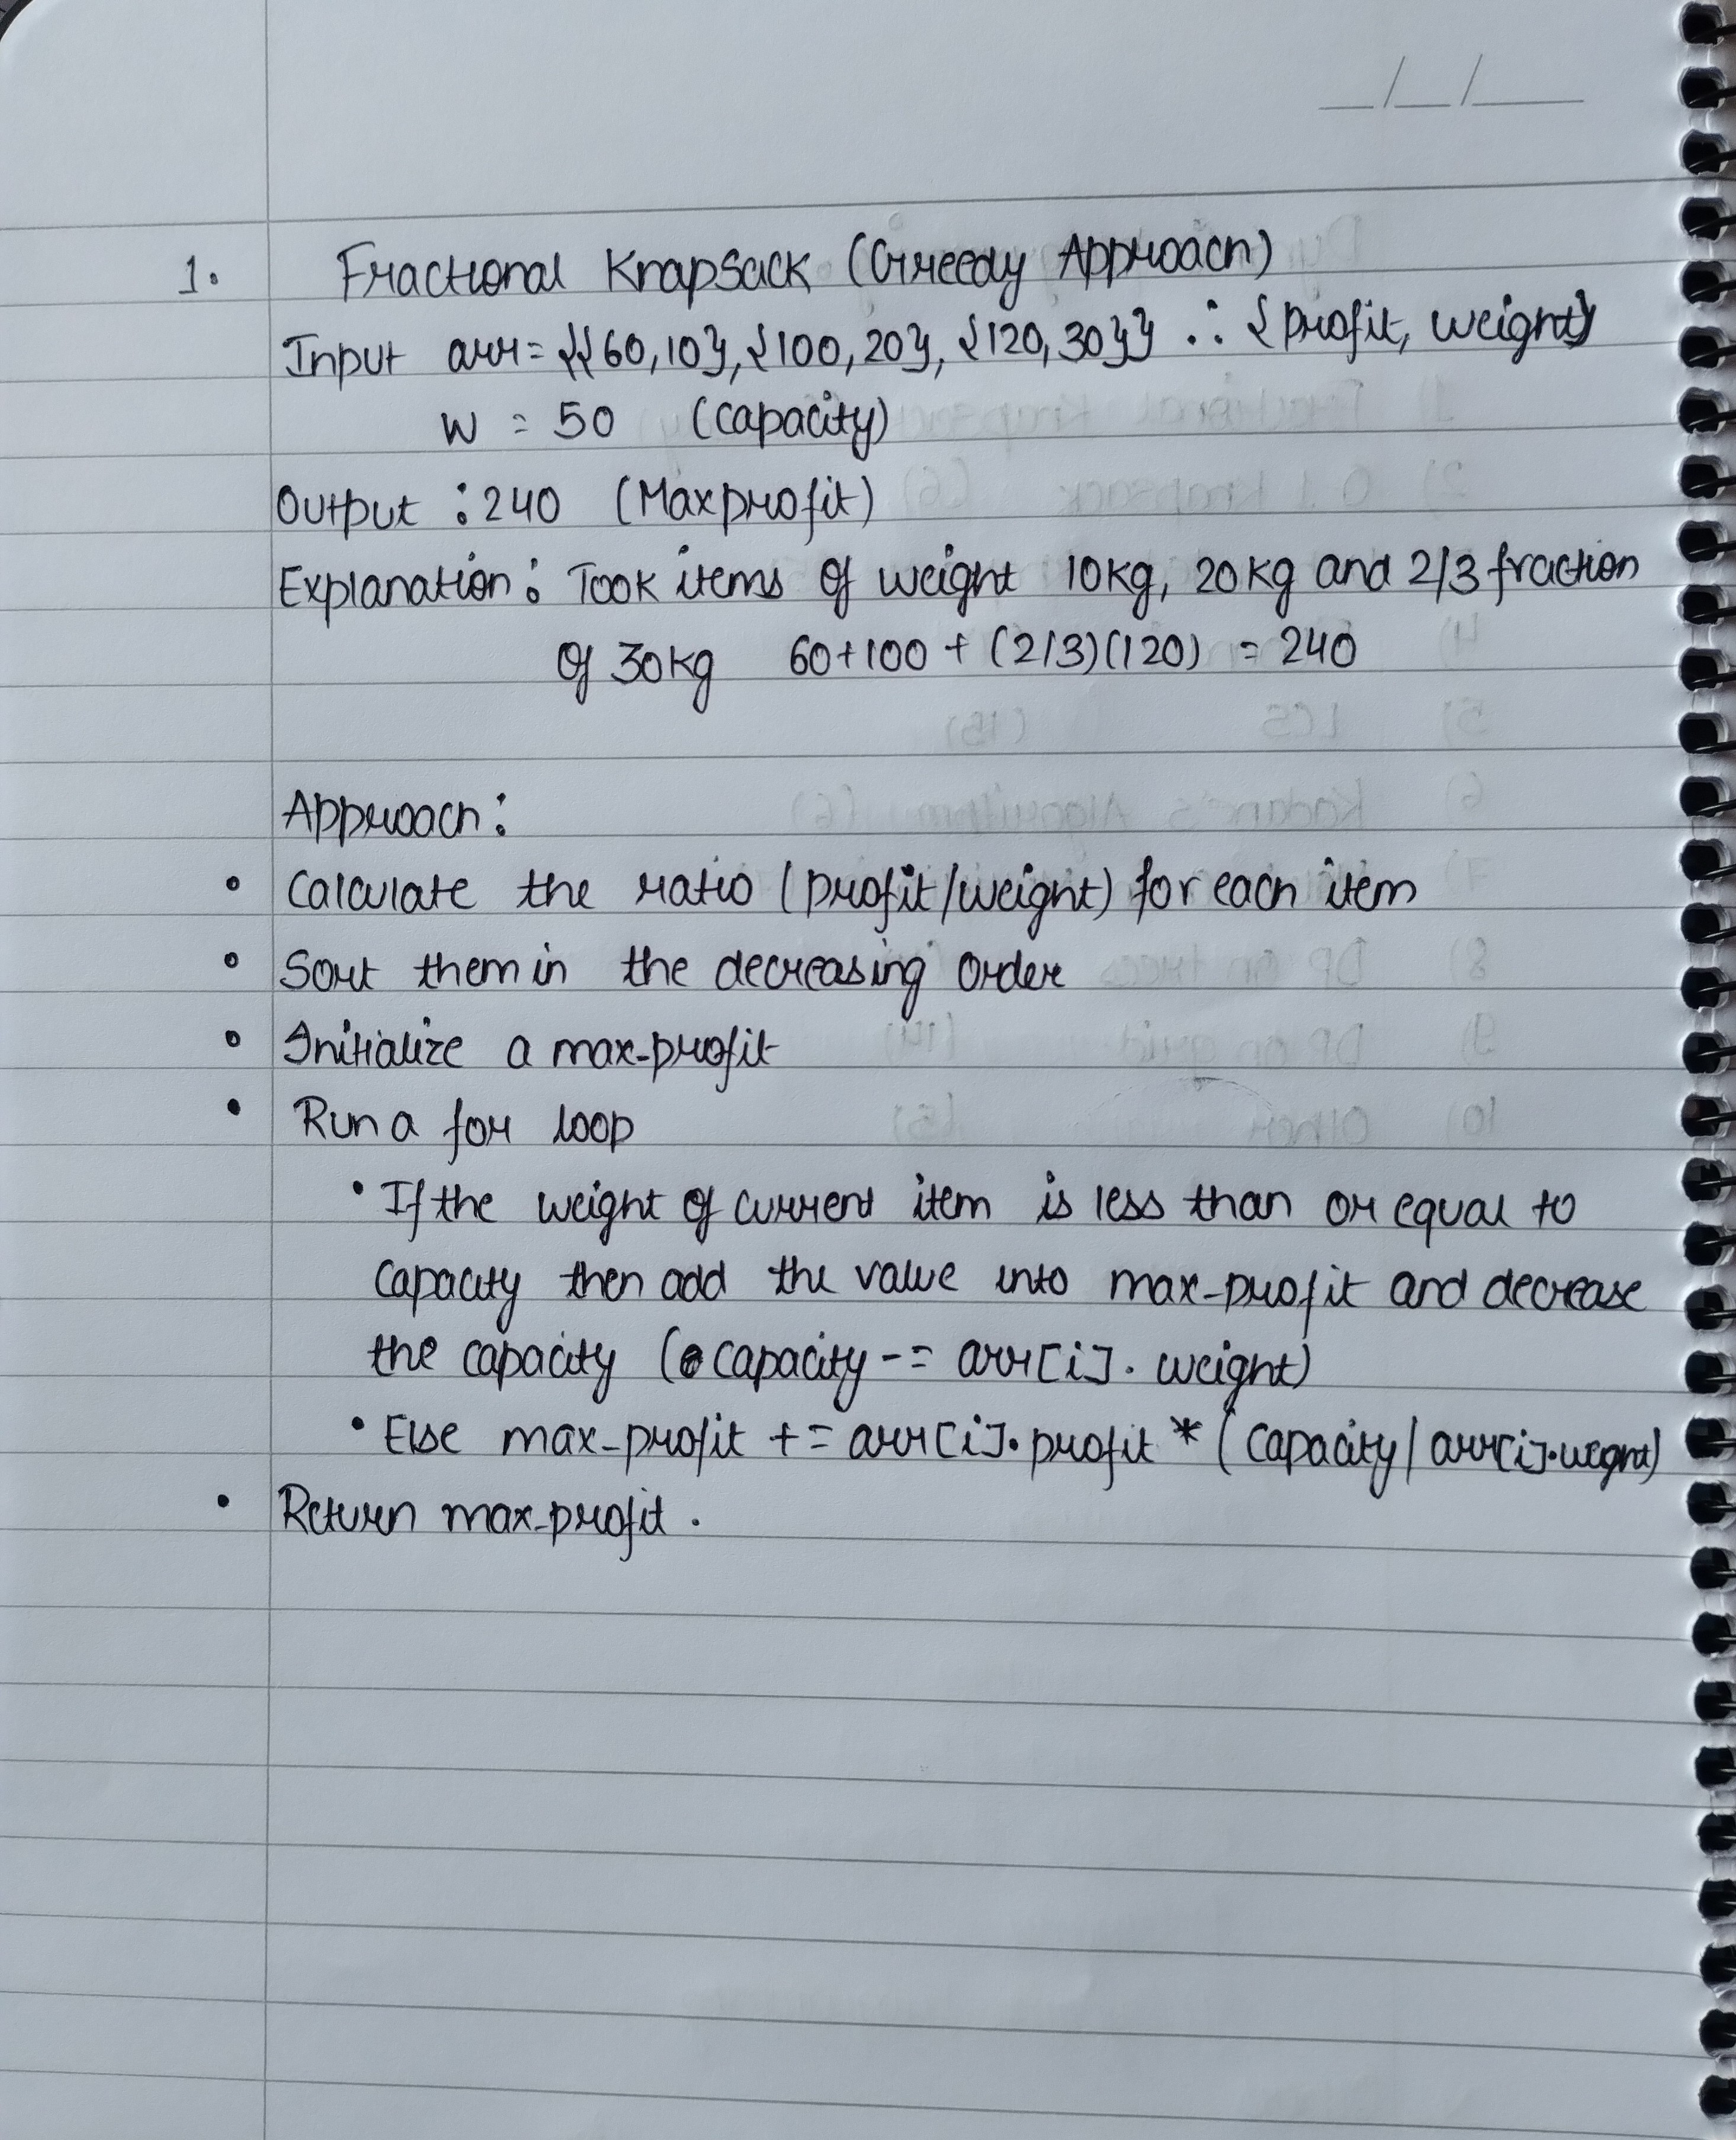 1. Fractional Knapsack (Greedy Approach)
Input arr = {{60,10}, {100,20}, {120,30}} ∴ {profit, weight}
W = 50 (capacity)
Output : 240 (Maxprofit)
Explanation : Took items of weight 10kg, 20kg and 2/3 fraction
of 30kg 60+100 + (2/3)(120) = 240
Approach :
• Calculate the ratio (profit/weight) for each item
• Sort them in the decreasing order
• Initialize a max-profit
• Run a for loop
• If the weight of current item is less than or equal to
capacity then add the value into max-profit and decrease
the capacity (capacity -= arr[i]. weight)
• Else max-profit += arr[i].profit * (capacity/arr[i].weight)
• Return max-profit.